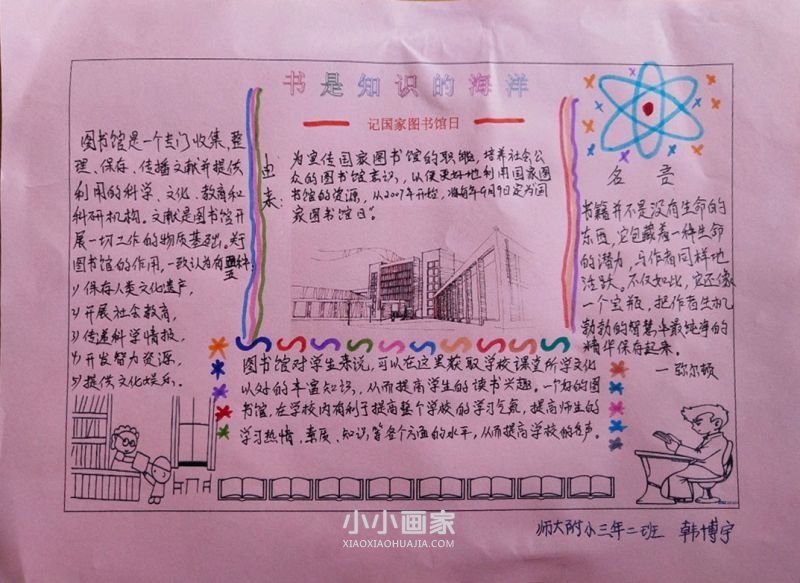 书是知识的海洋
记国家图书馆日
图书馆是一个专门收集、整
理、保存、传播文献并提供
利用的科学、文化、教育和
科研机构。文献是图书馆开
展一切工作的物质基础。关于
图书馆的作用,一致认为有五种:
1)保存人类文化遗产,
2)开展社会教育,
3)传递科学情报,
4)开发智力资源,
5)提供文化娱乐。
由来:
为宣传国家图书馆的职能,培养社会公
众的图书馆意识,以便更好地利用国家图
书馆的资源,从2007年开始,将每年9月9日定为国
家图书馆日。
图书馆对学生来说,可以在这里获取学校课堂所学文化
以外的丰富知识,从而提高学生的读书兴趣。一个好的图
书馆,在学校内有利于提高整个学校的学习气氛,提高师生的
学习热情、素质、知识等各个方面的水平,从而提高学校的名声。
名言
书籍并不是没有生命的
东西,它包藏着一种生命
的潜力,与作者同样地
活跃。不仅如此,它还像
一个宝瓶,把作者生机
勃勃的智慧中最纯净的
精华保存起来。
—弥尔顿
师大附小三年二班 韩博宇
小小画家
XIAOXIAOHUAJIA.COM